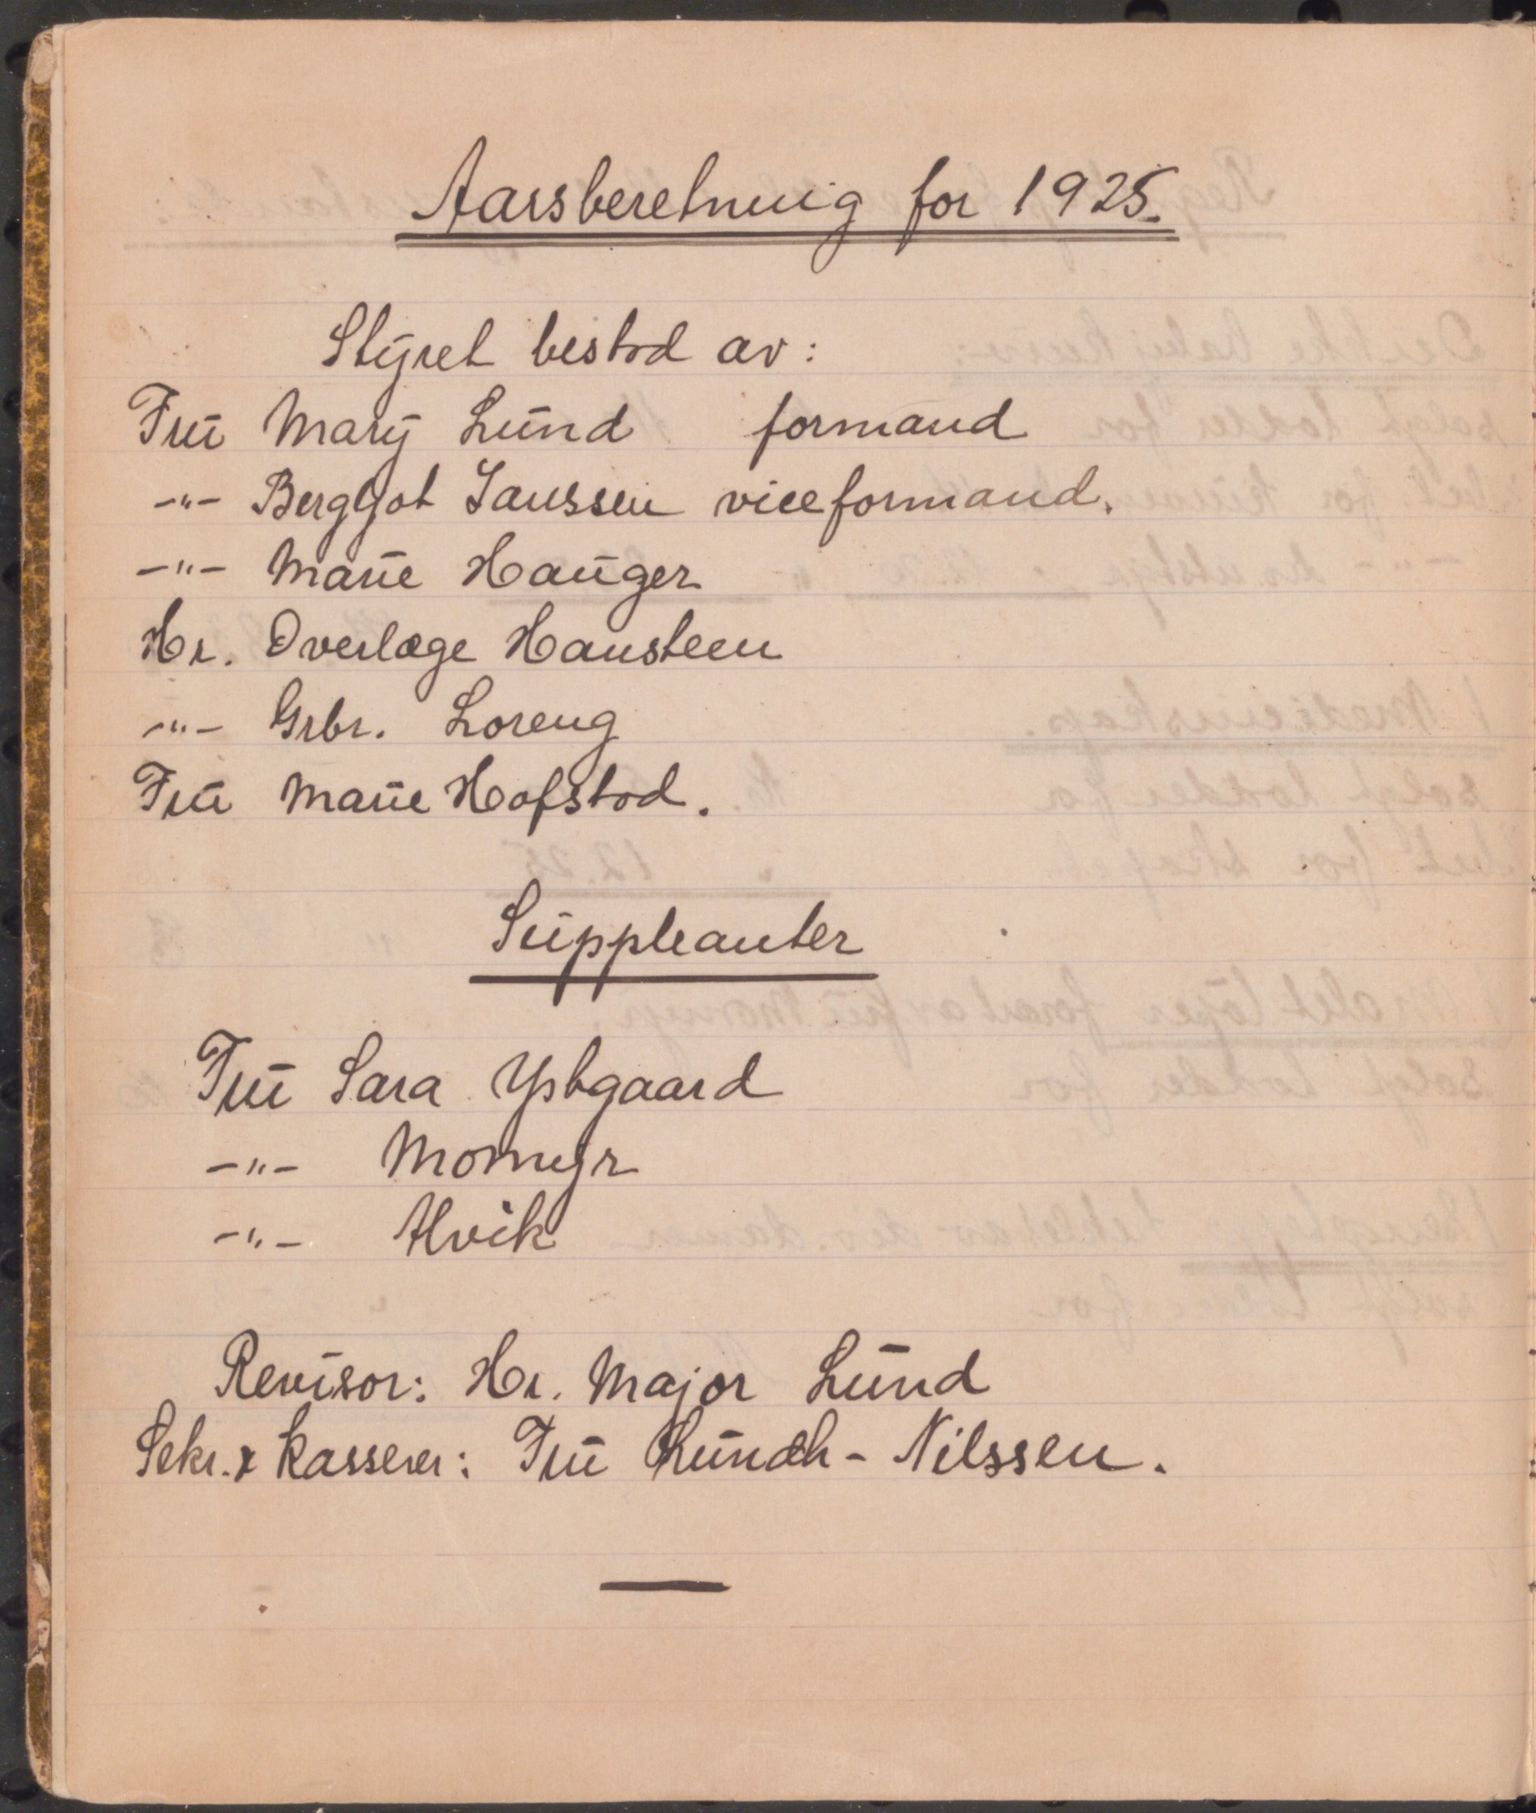 Aarsberetning for 1925.
Styret bestod av:
Fru Mary Lund formand
-"- Bergljot Janssen viceformand.
-"- Marie Hauger
Hr. Overlæge Hansteen
-"- Grbr. Loreng
Fru Marie Hofstad.
Suppleanter
Fru Sara Ystgaard
-"- Momyr
-"- Alvik
Revisor: Hr. Major Lund
Sekr. & Kasserer: Fru Lundh-Nilssen.